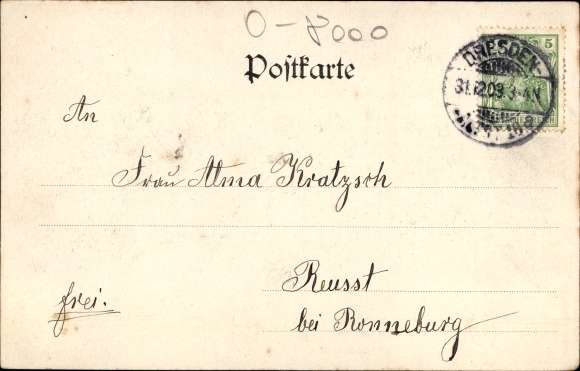 0-8000
Postkarte
5
DRESDEN-
31.12.03.3-4N
An
Frau Alma Kratzsch
Reusst
frei.
bei Ronneburg